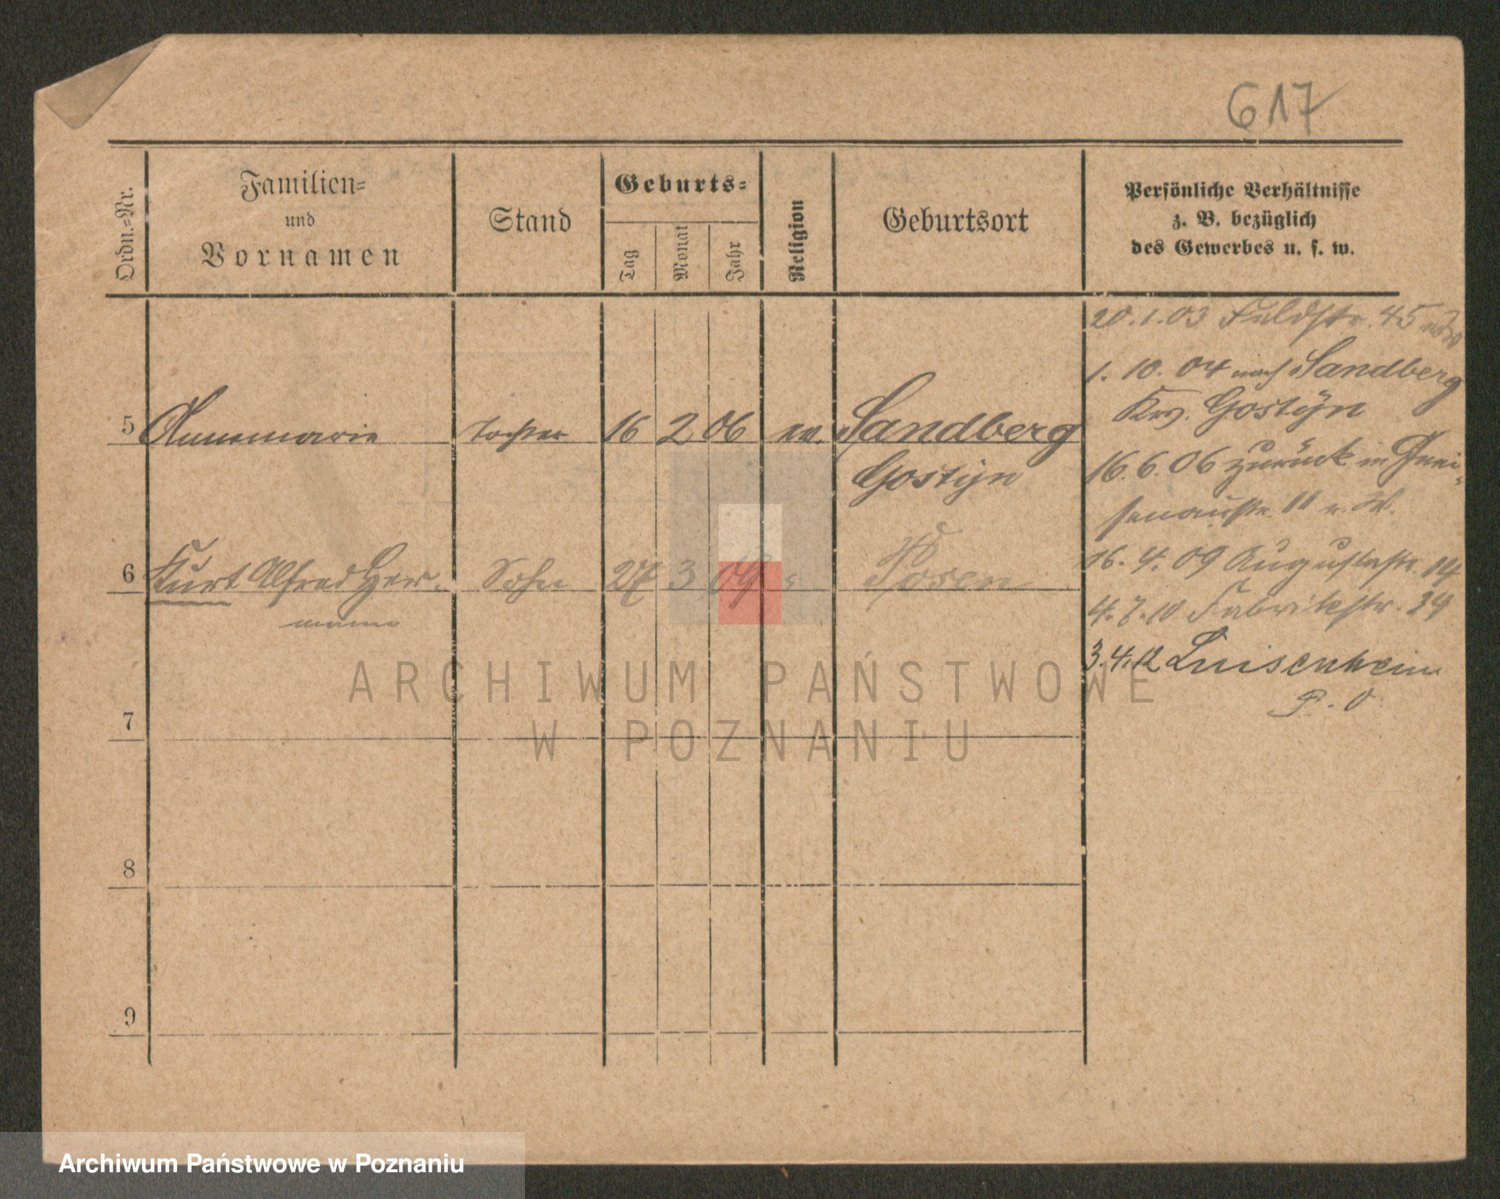 617
Ordn.-Nr.
Familien-
und
Vornamen
Stand
Geburts-
Tag
Monat
Jahr
Religion
Geburtsort
Persönliche Verhältnisse
z. B. bezüglich
des Gewerbes u. s. w.
20.1.03 Feldstr. 45
1. 10. 04 nach Sandberg
Krs. Gostÿn
5 Annemarie Tochter 16 2 06 ev. Sandberg
Gostÿn
16.6.06 zurück in Gnei-
senaustr. 11
6 Kurt Alfred Her- Sohn 27 3 09 " Posen
mann
16. 4. 09 Augustastr. 14
4.7.10 Fabrikstr. 34
3.4.12 Luisenhein
P. O
7
8
9
ARCHIWUM PAŃSTWOWE
W POZNANIU
Archiwum Państwowe w Poznaniu